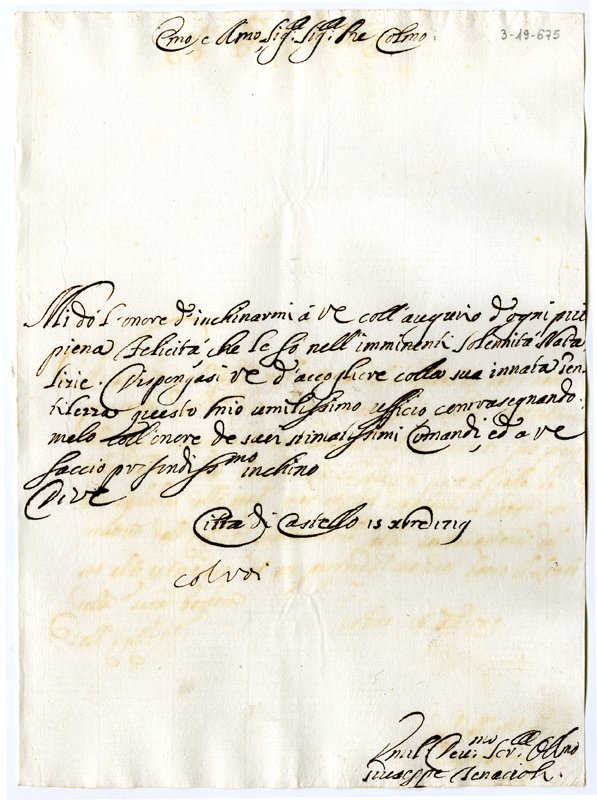 3-19-675
Emo, e Rmo Sig.re Sig.re Pne Colmo.
Mi dò l'onore d'inchinarmi à VE coll'augurio d'ogni più
piena Felicità che le fò nell'imminenti Solennità Nata
lizie. VE d'accogliere colla sua innata Gen
tilezza questo mio umilissimo ufficio contrasegnando
melo coll'onore de suoi stimatissimi Comandi, ed a VE
faccio profondiss.mo inchino
Di VE
Città di Castello 15 Xbre 1719
col voi
Umil.mo Dev.mo Ser.re Obl.mo
Giuseppe